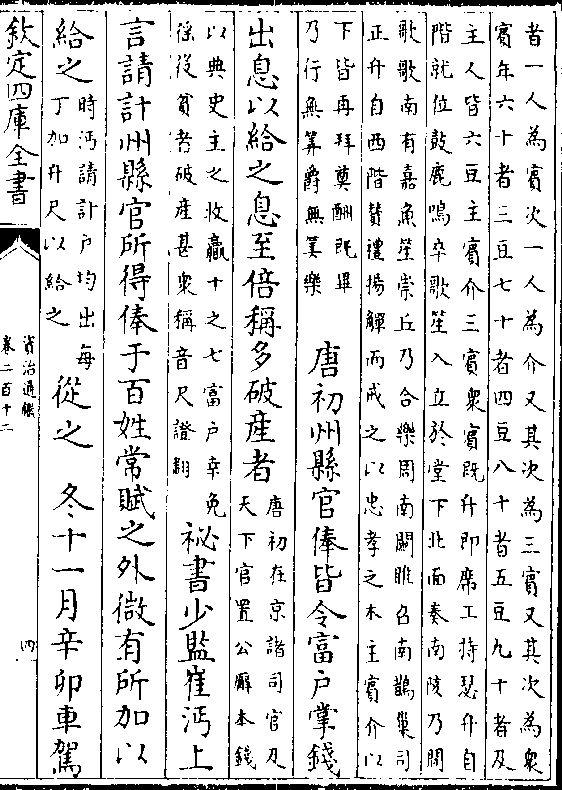 者一人為賓次一人為介又其次為三賓又其次為衆
賓年六十者三豆七十者四豆八十者五豆九十者及
主人皆六豆主賓介三賓衆賓既升即席工持瑟升自
階就位鼓鹿鳴卒歌笙入立於堂下北面奏南陵乃間
歌歌南有嘉魚笙崇丘乃合樂周南關睢召南鵲巢司
正升自西階贊禮揚觶而戒之以忠孝之本主賓介以
下皆再拜奠酬既畢
乃行無筭爵無筭樂
唐初州縣官俸皆令富戶掌錢
出息以給之息至倍稱多破產者
唐初在京諸司官及
天下官置公廨本錢
以典史主之收贏十之七富戶幸免
徭役貧者破產甚衆稱音尺證翻
祕書少監崔沔上
言請計州縣官所得俸于百姓常賦之外微有所加以
給之
時沔請計戶均出每
丁加升尺以給之
從之
冬十一月辛卯車駕
欽定四庫全書
資治通鑑
卷二百十二
四